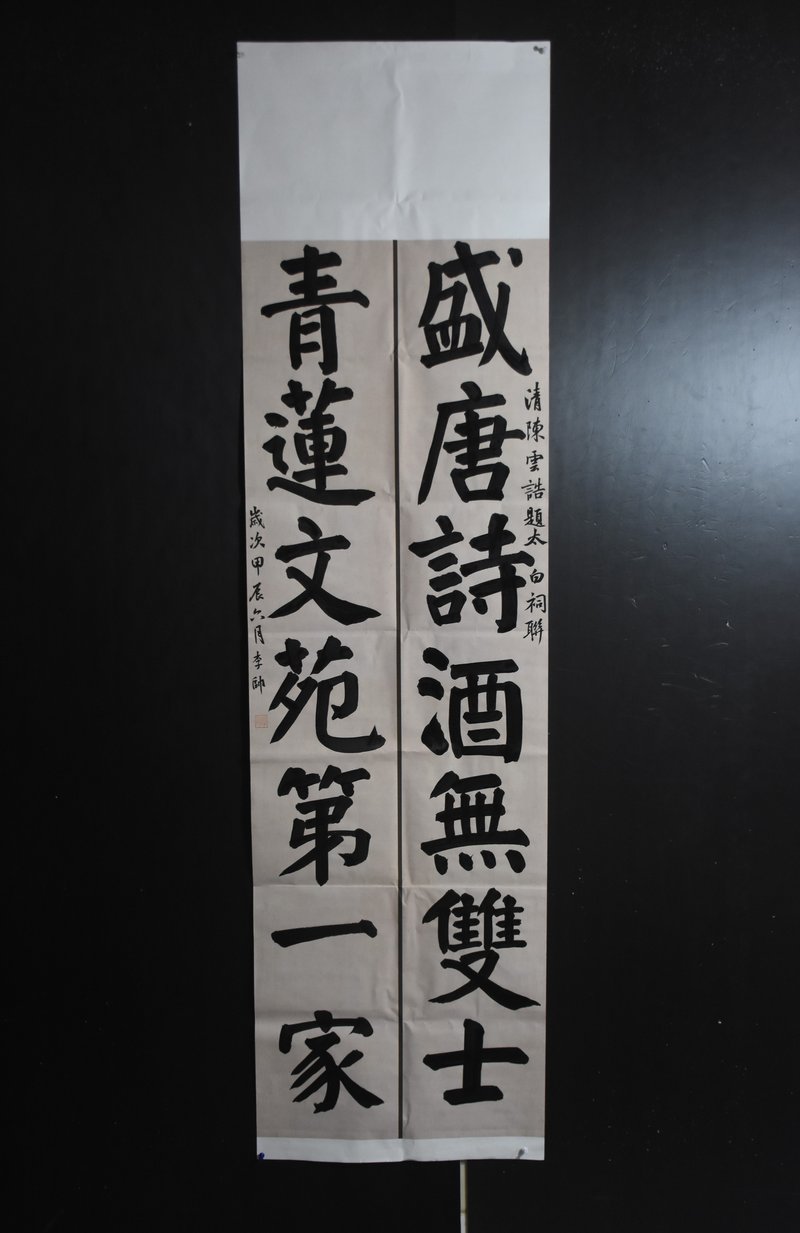 盛唐詩酒無雙士
清陳雲誥題太白祠聯
青蓮文苑第一家
歲次甲辰六月李帥